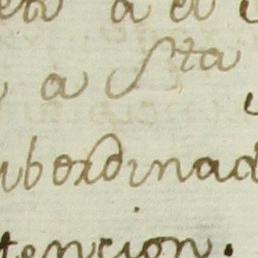 a el
a Sta
ubordinad
tencion.